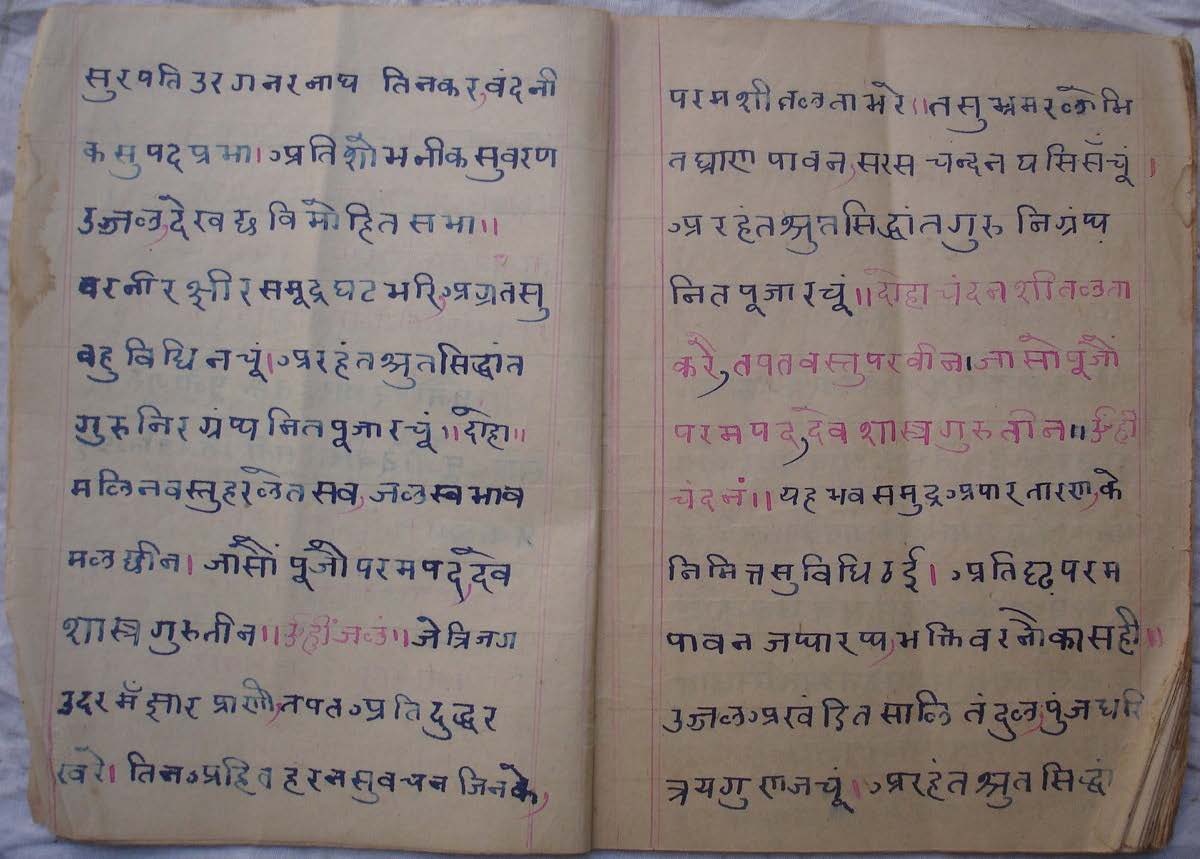 सुरपति उरगनरनाथ तिनकर, वंदनी
कसुपदप्रभा। अतिशोभनीकसुवरण
उज्जल, देखछविमोहितसभा॥
वरनीरक्षीरसमूद्रघटभरि, अग्रतसु
वहुविधिनचूं। अरहंतश्रुतसिद्धांत
गुरुनिरग्रंथनितपूजारचूं॥दोहा॥
मलिनवस्तुहरलेतसव, जलस्वभाव
मलछीन। जासौं पूजौपरमपद, देव
शास्त्रगुरुतीन॥ॐह्रींजलं॥ जेत्रिजग
उदरमँझार प्राणी, तपतअतिदुद्धर
खरे। तिनअहितहरनसुवचनजिनके,
परमशीतलताभरे॥तसुभ्रमरलोभि
तघ्राणपावन, सरसचंदनघसिसँचूं।
अरहंतश्रुतसिद्धांतगुरुनिग्रंथ
नितपूजारचूं॥दोहाचंदनशीतलता
करै, तपतवस्तुपरवीन।जासोपूजौं
परमपद, देवशास्त्रगुरुतीन॥ॐह्रीं
चंदनं॥यहभवसमुद्रअपारतारण, के
निमित्तसुविधिठई। अतिदृढ़परम
पावनजथारथ, भक्तिवरनौकासही॥
उज्जलअखंडितसालितंदुल, पुंजधरि
त्रयगुणजचूं। अरहंतश्रुतसिद्धां